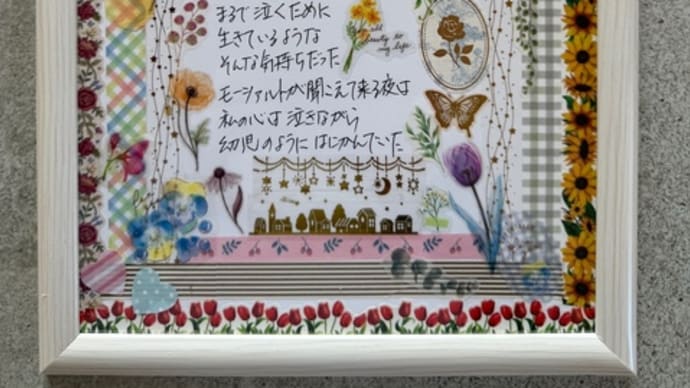 まるで泣くために
生きているような
そんな気持ちだった
モーツァルトが聞こえて来る夜は
私の心は泣きながら
幼児のようにはじかんでいた
beauty to
my life